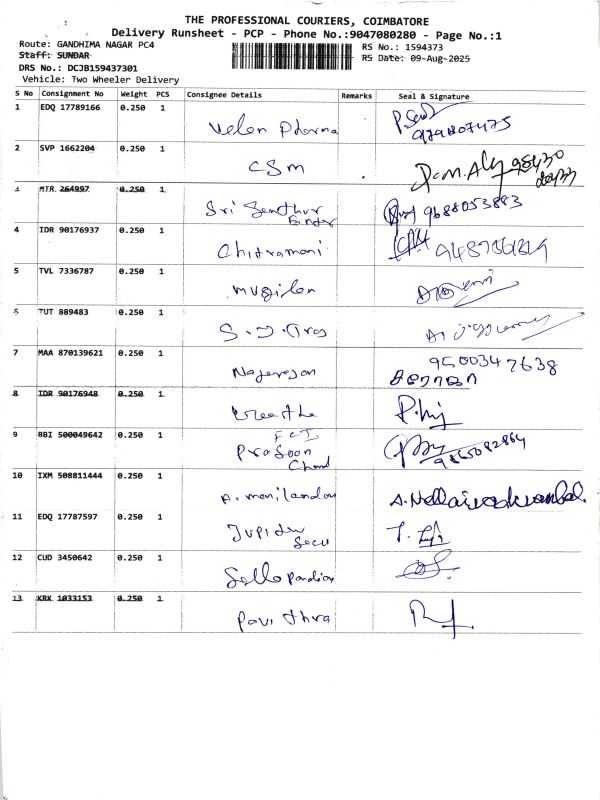 THE PROFESSIONAL COURIERS, COIMBATORE
Delivery Runsheet - PCP - Phone No.:9047080280 - Page No.:1
Route: GANDHIMA NAGAR PC4 RS No.: 1594373
Staff: SUNDAR RS Date: 09-Aug-2025
DRS No.: DCJB159437301
Vehicle: Two Wheeler Delivery
S No Consignment No Weight PCS Consignee Details Remarks Seal & Signature
1 EDQ 17789166 0.250 1
Velan Pharma
2 SVP 1662204 0.250 1
CSM
3 MTR 264997 0.250 1
Sri Senthur 9688053883
4 IDR 90176937 0.250 1
Chitramani
5 TVL 7336787 0.250 1
mugilan
6 TUT 889483 0.250 1
7 MAA 870139621 0.250 1 9500347638
Nagarajan
8 IDR 90176948 0.250 1
9 BBI 500049642 0.250 1
Prasoon
Chand 9865082864
10 IXM 508811444 0.250 1
A. manilandan
11 EDQ 17787597 0.250 1
Jupiter
Secu
12 CUD 3450642 0.250 1
Sella Pandian
13 KRK 1033153 0.250 1
Pavithra